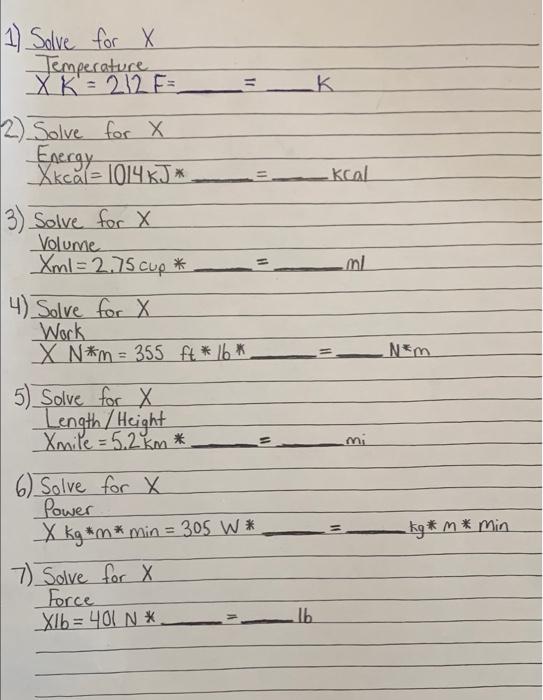 1) Solve for X
Temperature
X K = 212 F = ____ = ____ K
2) Solve for X
Energy
Xkcal = 1014 KJ * ____ = ____ kcal
3) Solve for X
Volume
Xml = 2.75 cup * ____ = ____ ml
4) Solve for X
Work
X N*m = 355 ft * lb * ____ = ____ N*m
5) Solve for X
Length / Height
Xmile = 5.2 km * ____ = ____ mi
6) Solve for X
Power
X kg*m* min = 305 W * ____ = ____ kg* m * min
7) Solve for X
Force
Xlb = 401 N * ____ = ____ lb